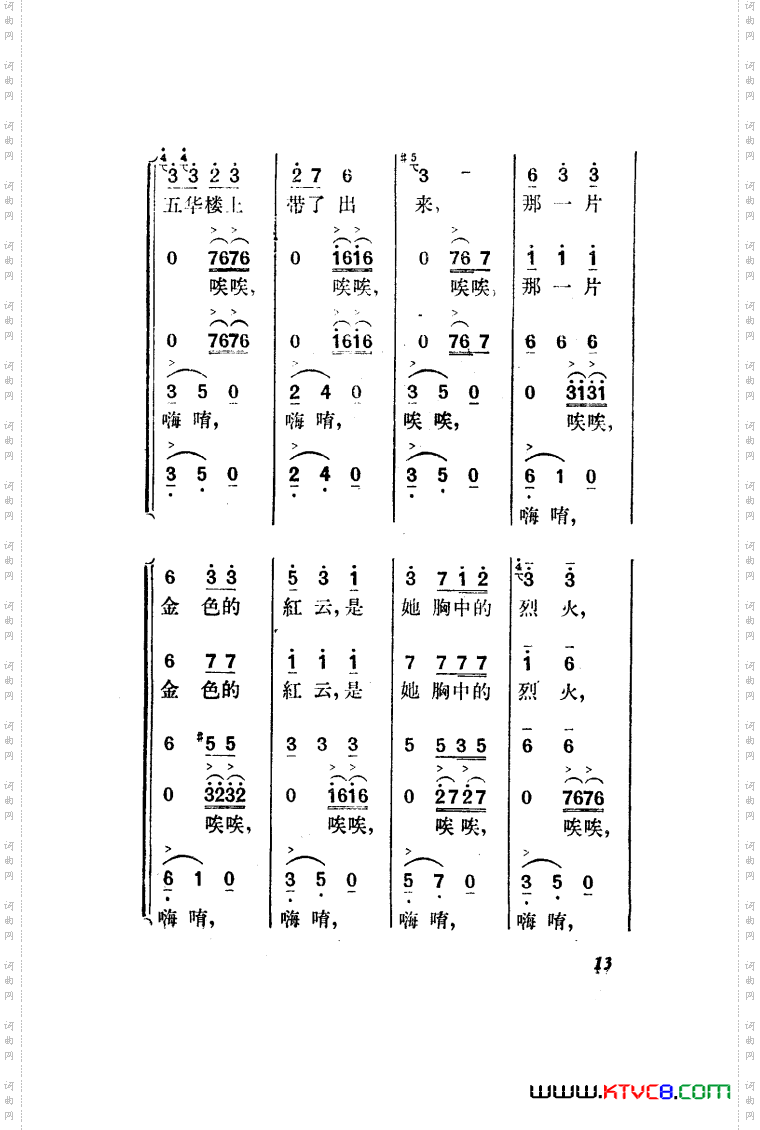 #5
4 4 3 3 2 3 2 7 6 3 - 6 3 3
五华楼上 带了出 来, 那一片
0 7676 0 1616 0 76 7 1 1 1
唉唉, 唉唉, 唉唉, 那一片
0 7676 0 1616 0 76 7 6 6 6
3 5 0 2 4 0 3 5 0 0 3131
嗨唷, 嗨唷, 唉唉, 唉唉,
3 5 0 2 4 0 3 5 0 6 1 0
嗨唷,
6 3 3 5 3 1 3 7 1 2 4 3 3
金色的 紅云,是 她胸中的 烈火,
6 7 7 1 1 1 7 7 7 7 1 6
金色的 紅云,是 她胸中的 烈火,
6 #5 5 3 3 3 5 5 3 5 6 6
0 3232 0 1616 0 2727 0 7676
唉唉, 唉唉, 唉唉, 唉唉,
6 1 0 3 5 0 5 7 0 3 5 0
嗨唷, 嗨唷, 嗨唷, 嗨唷,
13
www.KTVC8.com
词曲网